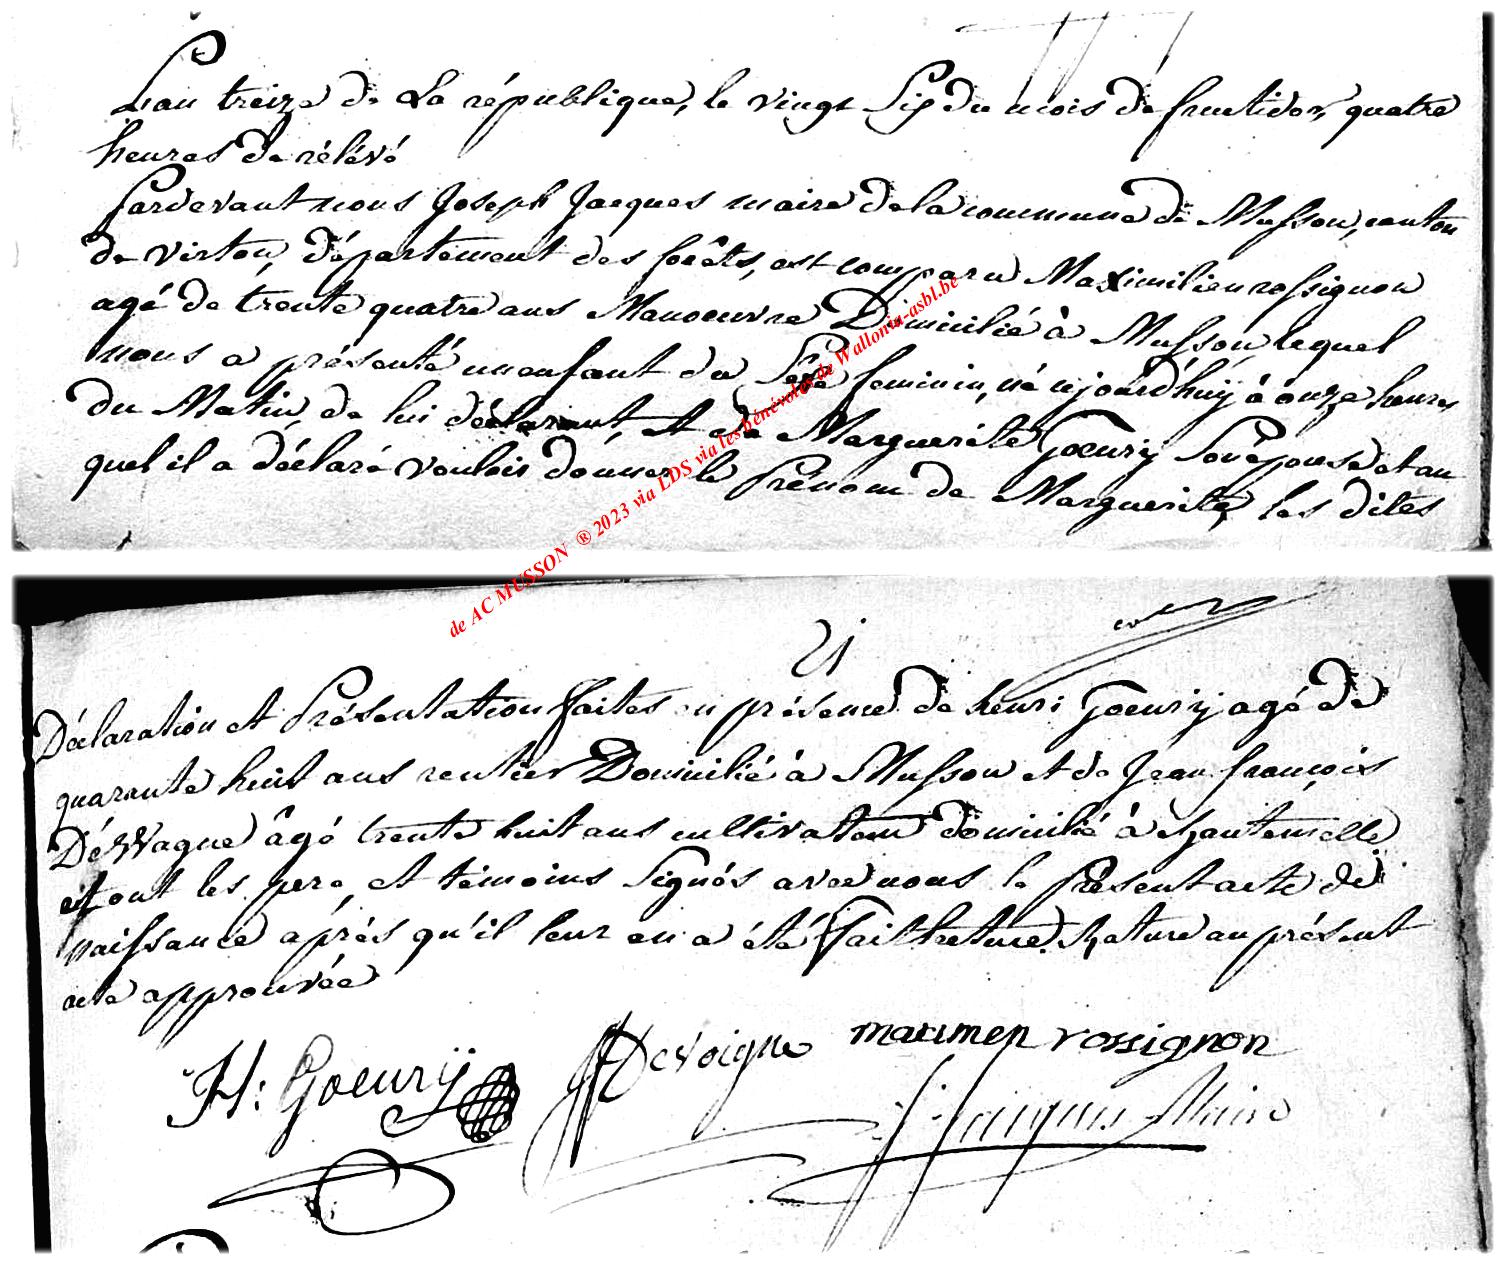 L'an treize de La république, le vingt Six du mois de fructidor, quatre
heures de rélévé
Pardevant nous Joseph Jacques maire de la commune de Musson, canton
de virton, département des forêts, est comparu Maximilien rossignon
agé de trente quatre ans Manoeuvre Domicilié à Musson, lequel
nous a présenté un enfant du Sexe feminin, né aujourd'huÿ à onze heures
du Matin, de lui déclarant, et de Marguerite Goeurÿ Son épouse et au
quel il a déclaré vouloir donner le Prénom de Marguerite, les dites
de AC MUSSON ® 2023 via LDS via les bénévoles de Wallonia-asbl.be
21
Déclaration et Présentation faites en présence de henri Goeurij agé de
quarante huit ans rentier Domicilié à Musson et de Jean françois
Dévvague âgé trente huit ans cultivateur domicilié à
et ont les pere, et témoins Signés avec nous le Présent acte de
naissance aprés qu'il leur en a été fait lecture. Rature au présent
acte approuvée
H: Goeurÿ
JF Devoigne
maximen rossignon
J. Jacques Maire